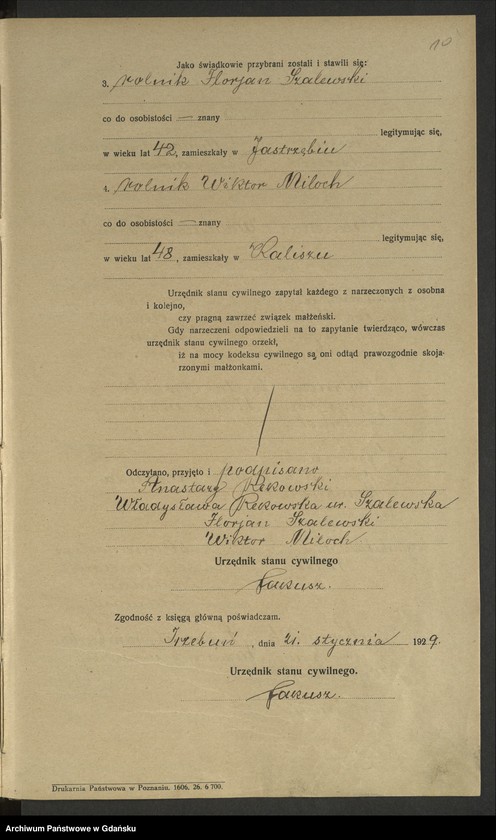 10
Jako świadkowie przybrani zostali i stawili się:
3. rolnik Florjan Szalewski
co do osobistości — znany
legitymując się,
w wieku lat 42, zamieszkały w Jastrzębiu
4. rolnik Wiktor Miloch
co do osobistości — znany
legitymując się,
w wieku lat 48, zamieszkały w Kaliszu
Urzędnik stanu cywilnego zapytał każdego z narzeczonych z osobna
i kolejno,
czy pragną zawrzeć związek małżeński.
Gdy narzeczeni odpowiedzieli na to zapytanie twierdząco, wówczas
urzędnik stanu cywilnego orzekł,
iż na mocy kodeksu cywilnego są oni odtąd prawozgodnie skoja-
rzonymi małżonkami.
Odczytano, przyjęto i podpisano
Anastazy Rekowski
Władysława Rekowska ur. Szalewska
Florjan Szalewski
Wiktor Miloch
Urzędnik stanu cywilnego
Jakusz.
Zgodność z księgą główną poświadczam.
Trzebuń, dnia 21. stycznia 1929.
Urzędnik stanu cywilnego.
Jakusz.
Drukarnia Państwowa w Poznaniu. 1606. 26. 6 700.
Archiwum Państwowe w Gdańsku